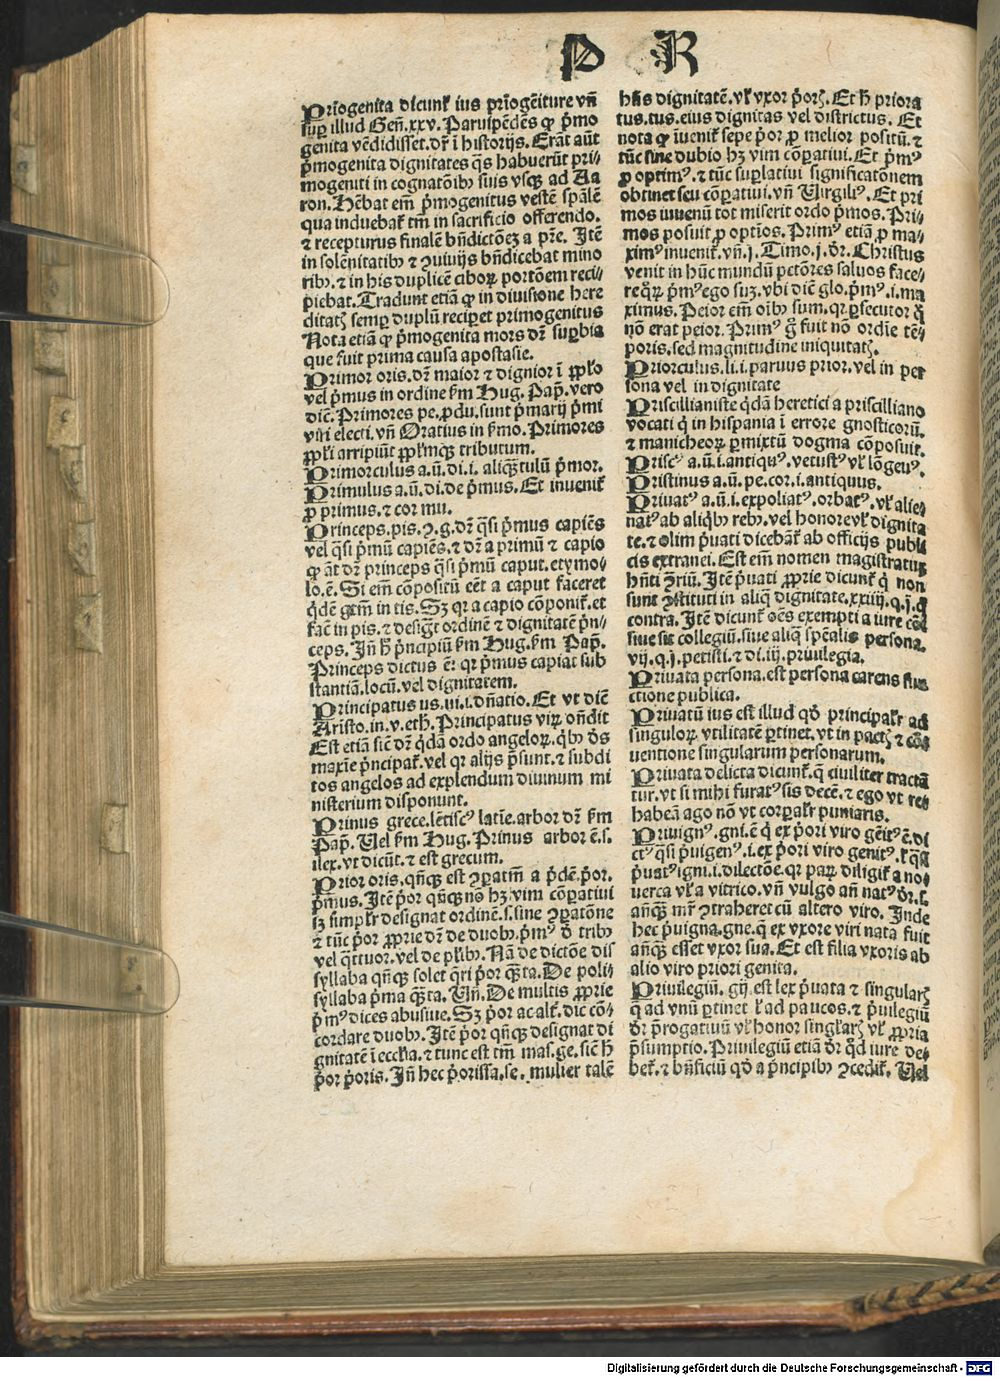 P R
Prīogenita dicunt᷑ ius prīogēiture vn̄
suꝑ illud Gen̄.xxv. Paruipēdēs ꝙ pͥmo
genita vēdidisset.dr̄ ī historijs. Erāt aūt
pͥmogenita dignitates qͣs habuerūt pri-
mogeniti in cognatōibꝫ suis vsqꝫ ad Aa
ron. Hēbat em̄ pͥmogenitus vestē spālē
qua induebat᷑ tm̄ in sacrificio offerendo.
⁊ recepturus finalē bn̄dictōeꝫ a pr̄e. Itē
in solēnitatibꝫ ⁊ ꝯuiuijs bn̄dicebat mino
ribꝫ.⁊ in his duplicē ciboꝝ portōem reci-
piebat. Tradunt etiā ꝙ in diuisione here
ditatꝭ semꝑ duplū reciꝑet primogenitus
Nota etiā ꝙ pͥmogenita mors dr̄ suꝑbia
que fuit prima causa apostasie.
Primor oris.dr̄ maior ⁊ dignior ī ppl̄o
vel pͥmus in ordine ẜm Hug. Pap̄.vero
dic̄. Primores pe.ꝓdu.sunt pͥmarij pͥmi
viri electi.vn̄ Oratius in ẜmo. Primores
ppl̄i arripiūt ppl̄mqꝫ tributum.
Primorculus a.ū.di.i. aliqͣtulū pͥmor.
Primulus a.ū.di.de pͥmus. Et inuenit᷑
ꝓ primus.⁊ cor mu.
Princeps.pis.ꝯ.g.dr̄ qͣsi pͥmus capiēs
vel qͣsi pͥmū capiēs.⁊ dr̄ a primū ⁊ capio
ꝙ āt dr̄ princeps qͣsi pͥmū caput.etymo-
lo.ē. Si em̄ cōpositū eēt a caput faceret
qͥdē gtm̄ in tis. Sꝫ qꝛ a capio cōponit᷑.et
fac̄ in pis.⁊ desigͣt ordinē ⁊ dignitatē pͥn-
ceps. Jn̄ h̄ pͥncipiū ẜm Hug. ẜm Pap̄.
Princeps dictus ē: qꝛ pͥmus capiat sub
stantiā.locū.vel dignitatem.
Principatus us.ui.i.dn̄atio. Et vt dic̄
Aristo.in.v.eth. Principatus viꝝ on̄dit
Est etiā sic̄ dr̄ qͥdā ordo angeloꝝ.qͥbꝫ dͤs
maxīe pͥncipat᷑.vel qꝛ alijs pͥsunt.⁊ subdi
tos angelos ad explendum diuinum mi
nisterium disponunt.
Prinus grece.lētiscꝰ latīe.arbor dr̄ ẜm
Pap̄. Uel ẜm Hug. Prinus arbor ē.s.
ilex.vt dicūt.⁊ est grecum.
Prior oris.qn̄qꝫ est ꝯꝑatm̄ a pͥdē.pͥor.
pͥmus. Itē pͥor qn̄qꝫ nō hꝫ vim cōꝑatiui
sꝫ simplr̄ designat ordinē.s.sine ꝯꝑatōne
⁊ tūc pͥor ꝓprie dr̄ de duobꝫ.pͥmꝰ dͤ tribꝫ
vel qͣttuor.vel de plr̄ibꝫ. Nā de dictōe dis
syllaba qn̄qꝫ solet qͣri pͥor qͣ̄ta. De poli-
syllaba pͥma qͣ̄ta. Un̄. De multis ꝓprie
pͥmꝰ dices abusiue. Sꝫ pͥor ac alt᷑.dic cō-
cordare duobꝫ. Itē pͥor qn̄qꝫ designat di
gnitatē ī eccl̄ia.⁊ tunc est tm̄ mas.ge.sic̄ h̄
pͥor pͥoris. Jn̄ hec pͥorissa.se. mulier talē
hn̄s dignitatē.vl̓ vxor pͥorꝭ. Et h̄ priora
tus.tus.eius dignitas vel districtus. Et
nota ꝙ īuenit᷑ sepe pͥor ꝓ melior positū.⁊
tūc sine dubio hꝫ vim cōꝑatiui. Et pͥmꝰ
ꝓ optimꝰ.⁊ tūc suꝑlatiui significatōnem
obtinet seu cōꝑatiui.vn̄ Uirgiliꝰ. Et pri
mos iuuenū tot miserit ordo pͥmos. Pri-
mos posuit ꝓ optīos. Primꝰ etiā ꝓ ma-
ximꝰ inuenit᷑.vn̄.j. Timo.j.dr̄. Christus
venit in hūc mundū pctōres saluos face-
re qͦꝝ pͥmꝰ ego suꝫ.vbi dic̄ glo.pͥmꝰ.i.ma
ximus. Peior em̄ oībꝫ sum.qꝛ ꝑsecutor qͦ
nō erat peior. Primꝰ gͦ fuit nō ordīe tē-
poris.sed magnitudine iniquitatꝭ.
Priorculus.li.i.paruus prior.vel in per
sona vel in dignitate
Priscillianiste qͥdā heretici a priscilliano
vocati qͥ in hispania ī errore gnosticorū.
⁊ manicheoꝝ ꝑmixtū dogma cōposuit.
Priscꝰ a.ū.i.antiquꝰ.vetustꝰ vl̓ lōgeuꝰ.
Pristinus a.ū.pe.cor.i.antiquus.
Priuatꝰ a.ū.i.expoliatꝰ.orbatꝰ.vl̓ alie-
natꝰ ab aliqͥbꝫ rebꝫ.vel honore vl̓ dignita
te.⁊ olim pͥuati dicebāt᷑ ab officijs publi
cis extranei. Est em̄ nomen magistratus
hn̄ti ꝯriū. Itē pͥuati ꝓprie dicunt᷑ qͥ non
sunt ꝯstituti in aliqͣ dignitate.xxiiij.q.j.
contra. Itē dicunt᷑ oēs exempti a iure cōi
siue sit collegiū.siue aliqͣ spēcalis persona.
vij.q.j.petisti.⁊ di.iij.priuilegia.
Priuata persona.est persona carens fun
ctione publica.
Priuatū ius est illud qd̓ principalr̄ ad
singuloꝝ vtilitatē ꝑtinet.vt in pactꝭ ⁊ cō-
uentione singularum personarum.
Priuata delicta dicunt᷑.q̄ ciuiliter tractā
tur.vt si mihi furatꝰ sis decē.⁊ ego vt re-
habeā ago nō vt corꝑalr̄ puniaris.
Priuignꝰ.gni.ē qͥ ex pͥori viro gēitꝰ ē.di
ctꝰ qͣsi pͥuigenꝰ.i.ex pͥori viro genitꝰ.
pͥuatꝰ igni.i.dilectōe.qꝛ paꝝ diligit᷑ a no-
uerca vl̓ a vitrico.vn̄ vulgo an̄ natꝰ dr̄.s.
an̄qͣꝫ mr̄ ꝯtraheret cū altero viro. Inde
hec pͥuigna.gne.q̄ ex vxore viri nata fuit
an̄qͣꝫ esset vxor sua. Et est filia vxoris ab
alio viro priori genita.
Priuilegiū.gij.est lex pͥuata ⁊ singularꝭ
q̄ ad vnū ꝑtinet vl̓ ad paucos.⁊ pͥuilegiū
dr̄ pͥrogatiuū vl̓ honor singl̓arꝭ vl̓ ꝓpria
pͥsumptio. Priuilegiū etiā dr̄ qd̓ iure de-
bet᷑.⁊ bn̄ficiū qd̓ a pͥncipibꝫ ꝯcedit᷑. Uel
Digitalisierung gefördert durch die Deutsche Forschungsgemeinschaft - DFG